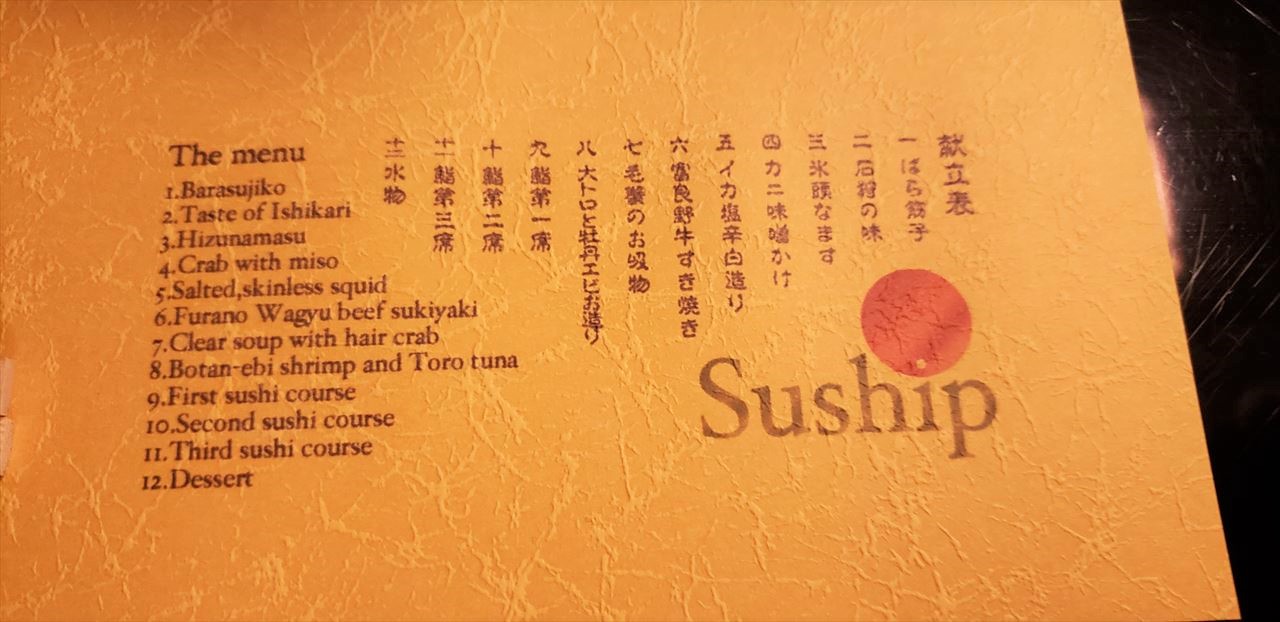 The menu
1.Barasujiko
2.Taste of Ishikari
3.Hizunamasu
4.Crab with miso
5.Salted,skinless squid
6.Furano Wagyu beef sukiyaki
7.Clear soup with hair crab
8.Botan-ebi shrimp and Toro tuna
9.First sushi course
10.Second sushi course
11.Third sushi course
12.Dessert
献立表
一 ばら筋子
二 石狩の味
三 氷頭なます
四 カニ味噌かけ
五 イカ塩辛白造り
六 富良野牛すき焼き
七 毛蟹のお吸物
八 大トロと牡丹エビお造り
九 鮨第一席
十 鮨第二席
十一 鮨第三席
十二 水物
Suship